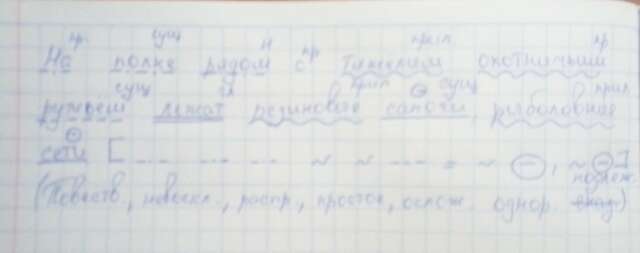 пр сущ н пр прил пр
На полке рядом с тяжёлым охотничьим
сущ гл прил сущ прил
ружьём лежат резиновые сапоги, рыболовные
сети [--- --- --- ~ ~ --- = ~ —, ~ —]
подлеж.
(Повеств., невоскл., распр., простое, ослож. однор.